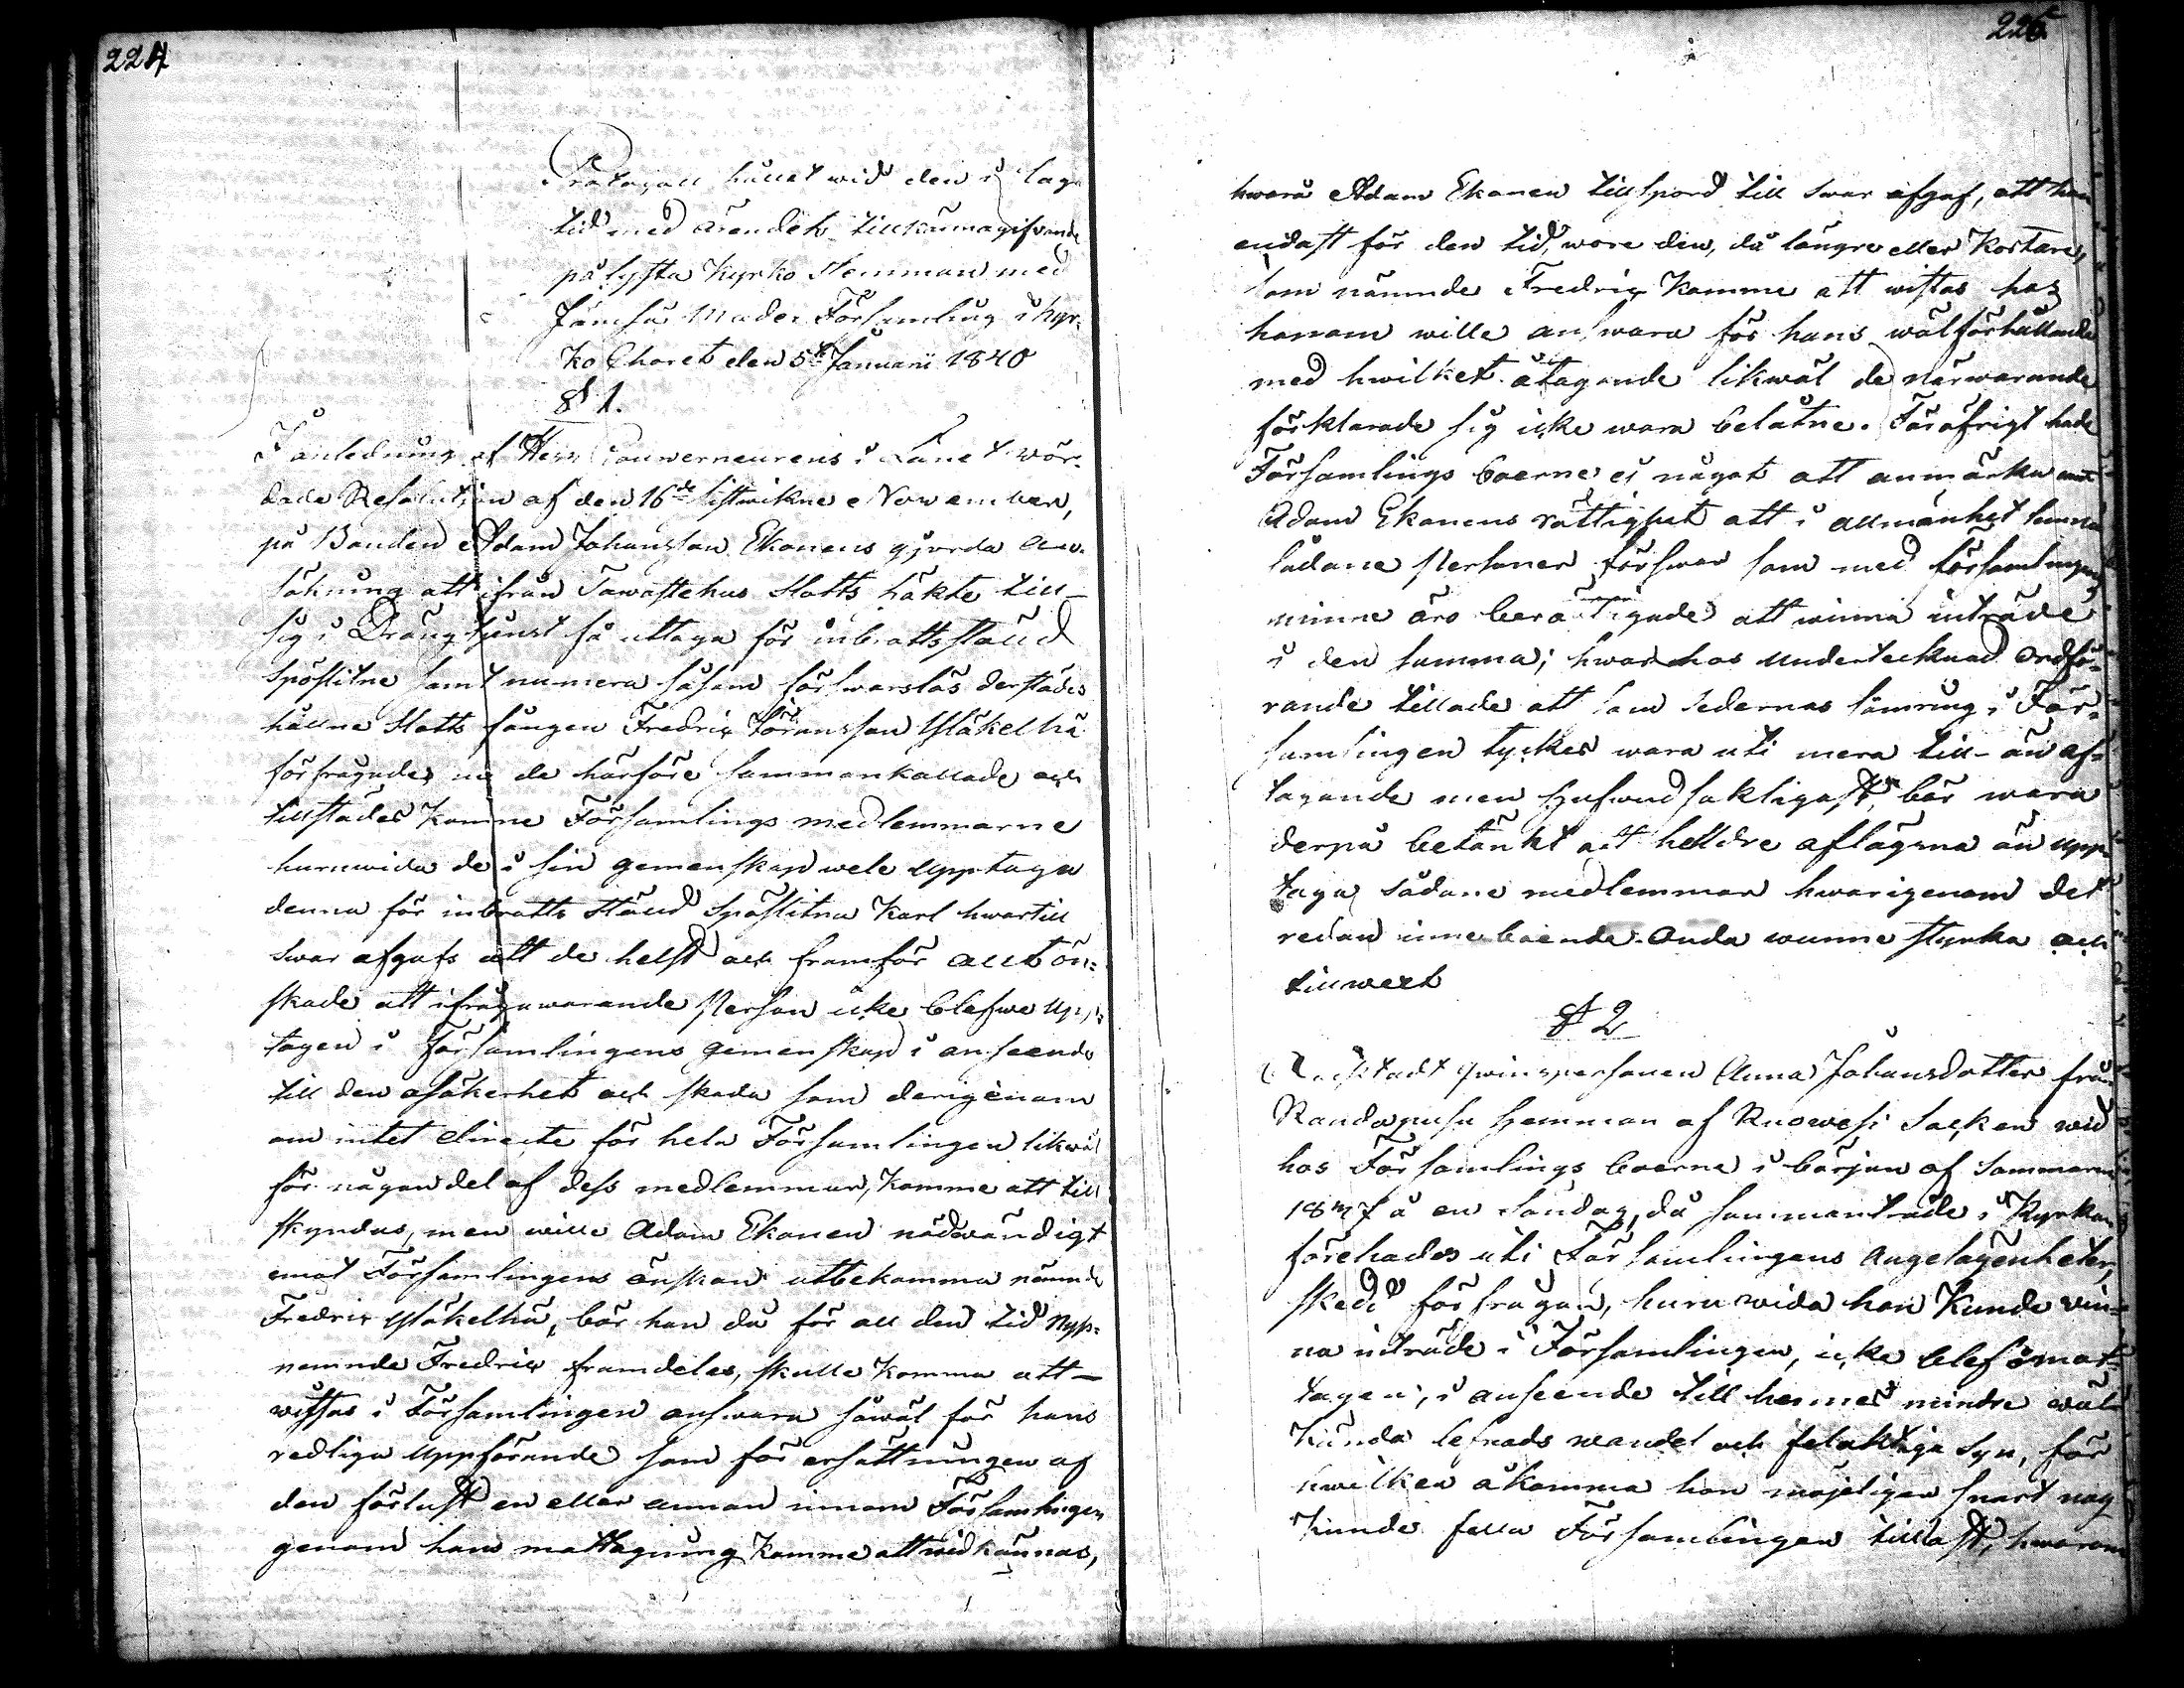 224
Protocoll hållet wid den i laga
tid med ärendets tillkännagifvande
pålysta Kyrko Stemman med
Jämsä Moder Församling i Kyr-
ko Choret den 5te Januarii 1840
§ 1.
I anledning af Herr Gouverneurens i Länet wör-
dade Resolution af den 16de sistwikne November,
på Bonden Adam Johansson Ekonens gjorda an-
sökning att ifrån Tawastehus Slotts häkte till
sig i Drängtjenst få uttaga för inbrottsstöld
spöslitne samt numera såsom förswarslös derstädes
hållne Slotts fången Fredric Göransson
förfrågades nu de härföre sammankallade och
tillstädes komne Församlings medlemmarne
huruwida de i sin gemenskap wele upptaga
denna för inbrotts stöld spöslitna Karl hwartill
swar afgafs att de helst och framför allt ön-
skade att ifrågawarande Person icke blefwe upp-
tagen i Församlingens gemenskap i anseende
till den osäkerhet och skada som derigenom
om intet directe för hela Församlingen likwäl
för någon del af dess medlemmar, komme att till
skyndas, men wille Adam Ekonen nödwändigt
emot Församlingens önskan utbekomma nämnde
Fredric, bör han då för all den tid nyss-
nemnde Fredric framdeles, skulle komma att
wistas i Församlingen answara såwäl för hans
redliga uppförande som för ersättningen af
den förlust en eller annan innom Församlingen
genom hans mottagning komme att widkännas,
225
hwarå Adam Ekonen tillspord till swar afgaf, att han
endast för den tid, wore den, då längre eller kortare,
som nämnde Fredric komme att wistas hos
honom wille answara för hans wälförhållande
med hwilket åtagande likwäl de närwarande
förklarade sig icke wara belåtne. Föröfrigt hade
Församlings boerne ej något att anmärka emot
Adam Ekonens rättighet att i allmänhet lemna
sådane Personer förswar som med församlingens
minne äro berättigade att winna inträde
i den samma; hwarhos undertecknad Ordfö-
rande tillade att som Sedernas sämring i För-
samlingen tyckes wara uti mera till- än af-
tagande men hufwudsakligast, bör wara
derpå betänkt att heldre aflägsna än upp-
taga sådane medlemmar hwarigenom det
redan inneboende Onda wunne styrka och
tillwext
§ 2
qwinspersonen Anna Johansdotter från
hemman af Ruowesi Socken wid
hos Församlings boerne i början af Sommaren
1837 å en söndag, då sammanträde i Kyrkan
förehades uti Församlingens angelägenheter,
skedd förfrågan, huruwida hon kunde vin-
na inträde i Församlingen, icke blef emot-
tagen, i anseende till hennes mindre wäl
kända lefnads wandel och felaktiga syn, för
hwilken åkomma hon möjeligen snart nog
kunde falla Församlingen till last, hwarom